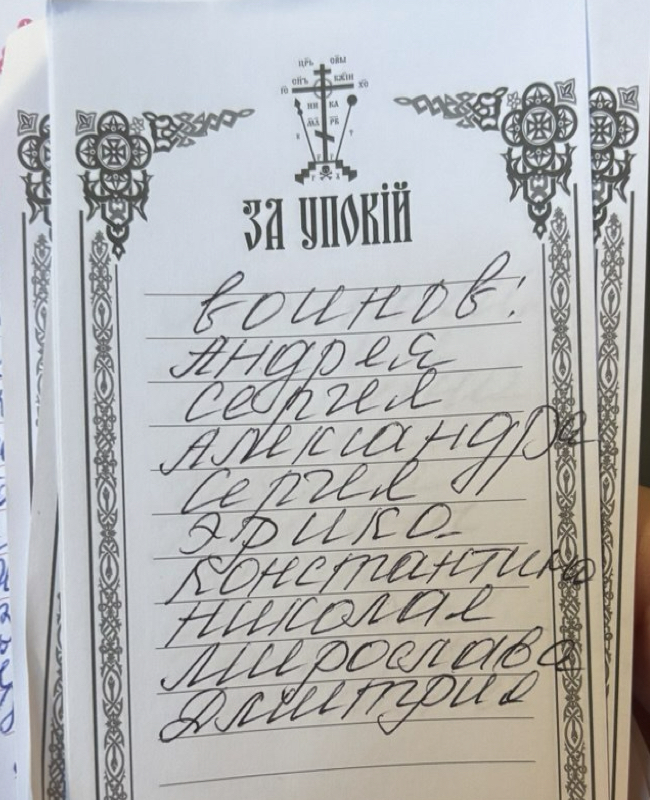 ЦРЬ СВЫ
СНЪ БЖІЙ
ІС ХС
НИ КА
К Т
Г А
ЗА УПОКІЙ
воинов:
Андрея
Сергея
Александра
Сергея
Эрика
Константина
Николая
Мирослава
Дмитрия